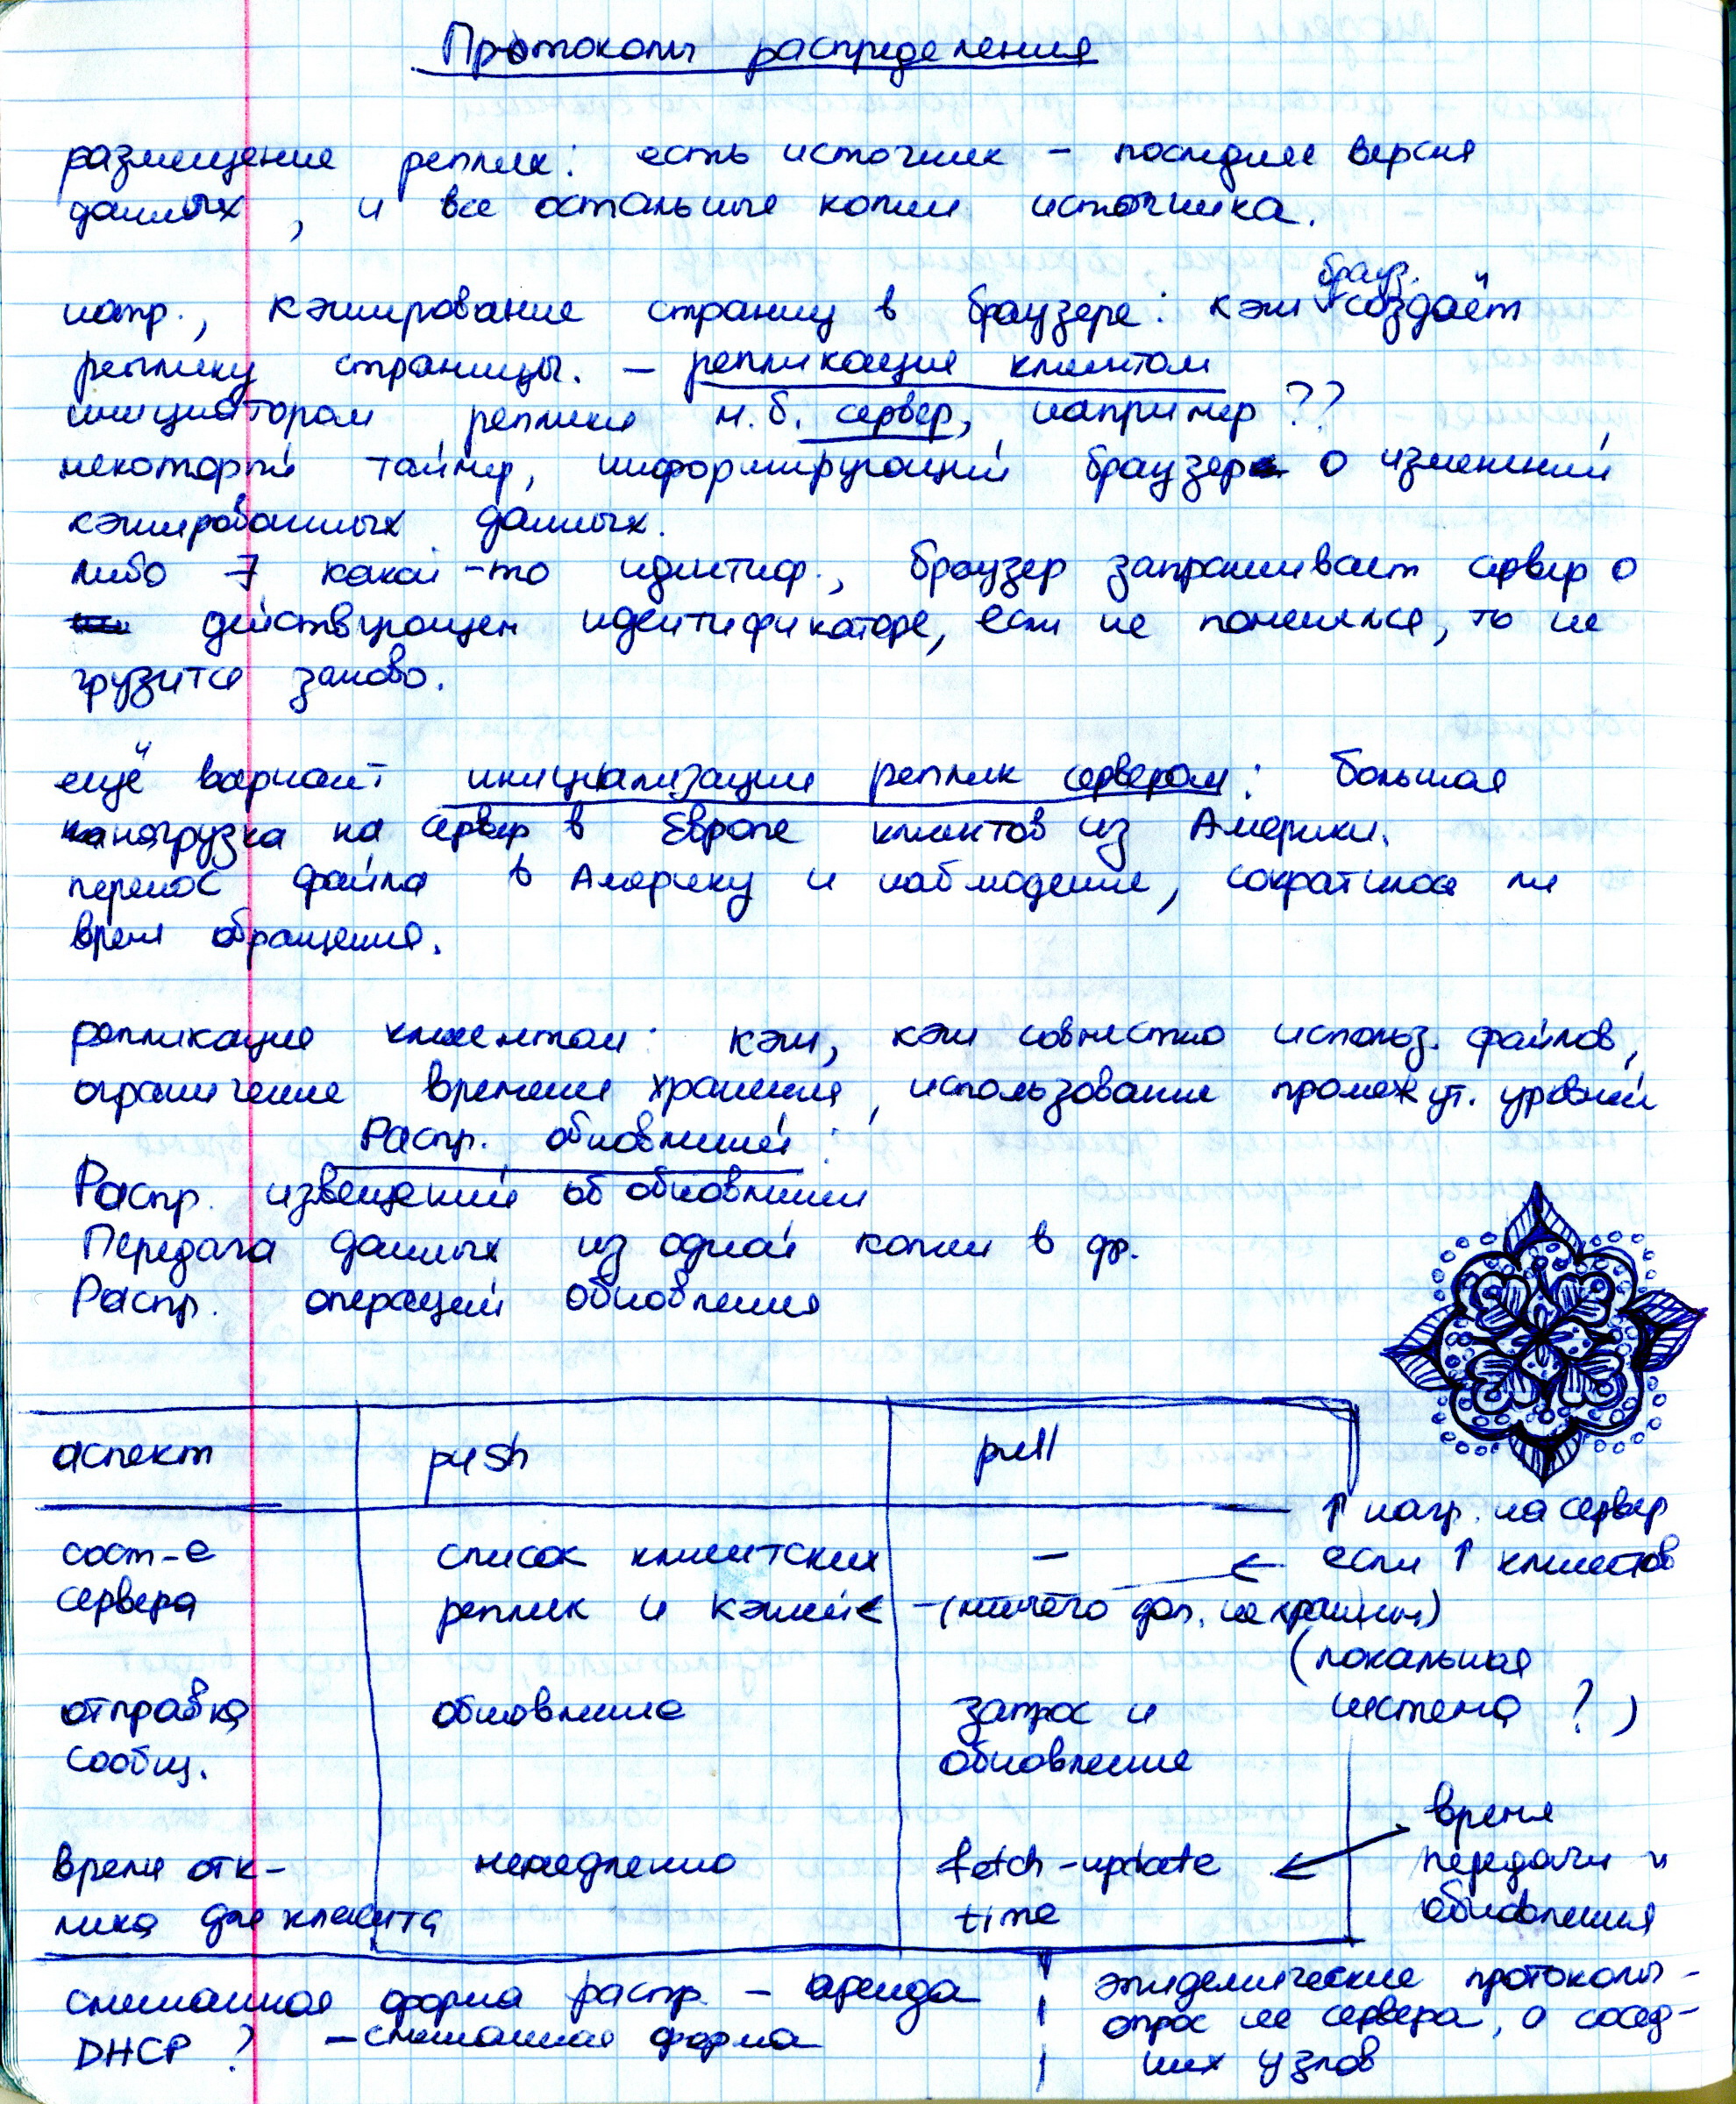 Протоколы распределения
размещение реплик: есть источник – последняя версия
данных, и все остальные копии источника.
напр., кэширование страниц в браузере: кэш брауз. создаёт
реплику страницы. – репликация клиентом
инициатором реплики м.б. сервер, например ??
некоторый таймер, информирующий браузер о изменений
кэшированных данных.
либо ∃ какой-то идентиф., браузер запрашивает сервер о
действующем идентификаторе, если не поменялся, то не
грузится заново.
ещё вариант инициализации реплик сервером: большая
нагрузка на сервер в Европе клиентов из Америки.
перенос файла в Америку и наблюдение, сократилось ли
время обращения.
репликация клиентом: кэш, кэш совместно использ. файлов,
ограничение времени хранения, использование промежут. уровней
Распр. обновлений:
Распр. извещений об обновлении
Передача данных из одной копии в др.
Распр. операций обновления
аспект push pull
↑ нагр. на сервер
сост-е список клиентских – ← если ↑ клиентов
сервера реплик и кэшей ← –(ничего доп. не храним)
(локальная
отправка обновление запрос и система ?)
сообщ. обновление
время
время отк- немедленно fetch-update ← передачи и
лика для клиента time обновления
смешанная форма распр – аренда
DHCP ? – смешанная форма
эпидемические протоколы -
опрос не сервера, а сосед-
них узлов